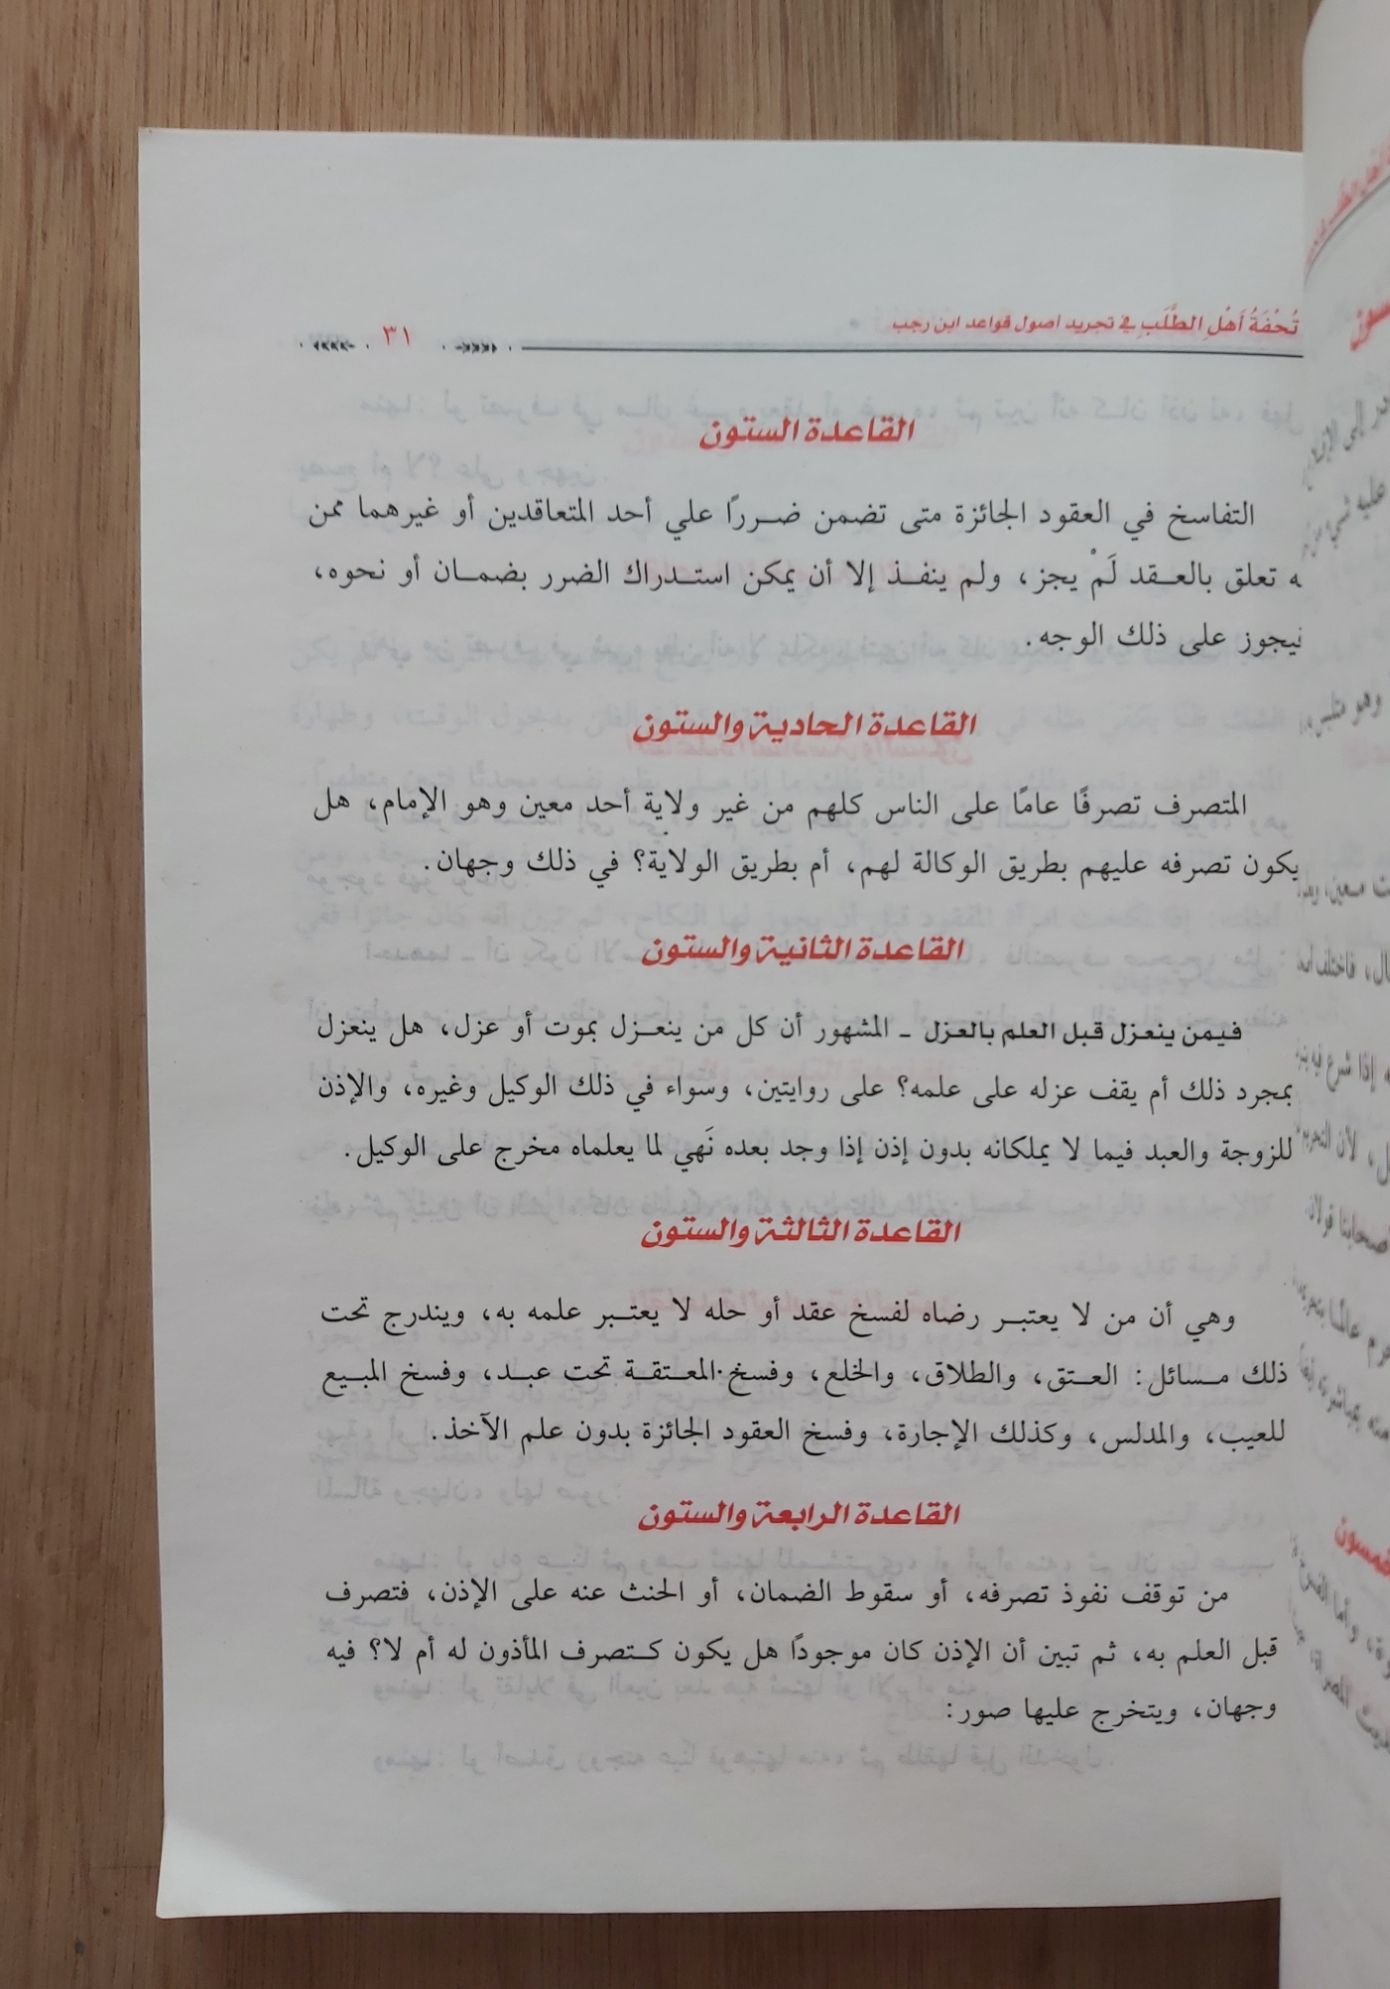 تُحْفَةُ أَهْلِ الطَّلَبِ في تجريد أصول قواعد ابن رجب
٣١
القاعدة الستون
التفاسخ في العقود الجائزة متى تضمن ضررًا علي أحد المتعاقدين أو غيرهما ممن
تعلق بالعقد لَمْ يجز، ولم ينفذ إلا أن يمكن استدراك الضرر بضمان أو نحوه،
فيجوز على ذلك الوجه.
القاعدة الحادية والستون
المتصرف تصرفًا عامًا على الناس كلهم من غير ولاية أحد معين وهو الإمام، هل
يكون تصرفه عليهم بطريق الوكالة لهم، أم بطريق الولاية؟ في ذلك وجهان.
القاعدة الثانية والستون
فيمن ينعزل قبل العلم بالعزل ـ المشهور أن كل من ينعزل بموت أو عزل، هل ينعزل
بمجرد ذلك أم يقف عزله على علمه؟ على روايتين، وسواء في ذلك الوكيل وغيره، والإذن
للزوجة والعبد فيما لا يملكانه بدون إذن إذا وجد بعده نَهي لما يعلماه مخرج على الوكيل.
القاعدة الثالثة والستون
وهي أن من لا يعتبر رضاه لفسخ عقد أو حله لا يعتبر علمه به، ويندرج تحت
ذلك مسائل: العتق، والطلاق، والخلع، وفسخ المعتقة تحت عبد، وفسخ المبيع
للعيب، والمدلس، وكذلك الإجارة، وفسخ العقود الجائزة بدون علم الآخذ.
القاعدة الرابعة والستون
من توقف نفوذ تصرفه، أو سقوط الضمان، أو الحنث عنه على الإذن، فتصرف
قبل العلم به، ثم تبين أن الإذن كان موجودًا هل يكون كتصرف المأذون له أم لا؟ فيه
وجهان، ويتخرج عليها صور: